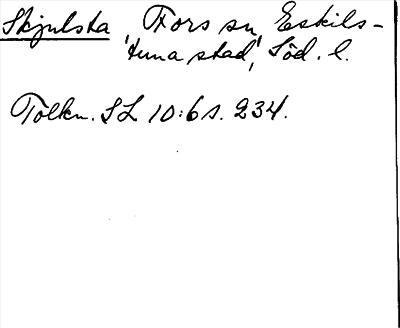 Skjulsta, Fors sn, Eskils-
tuna stad, Söd. l.
Tolkn. SL 10:6 s. 234.